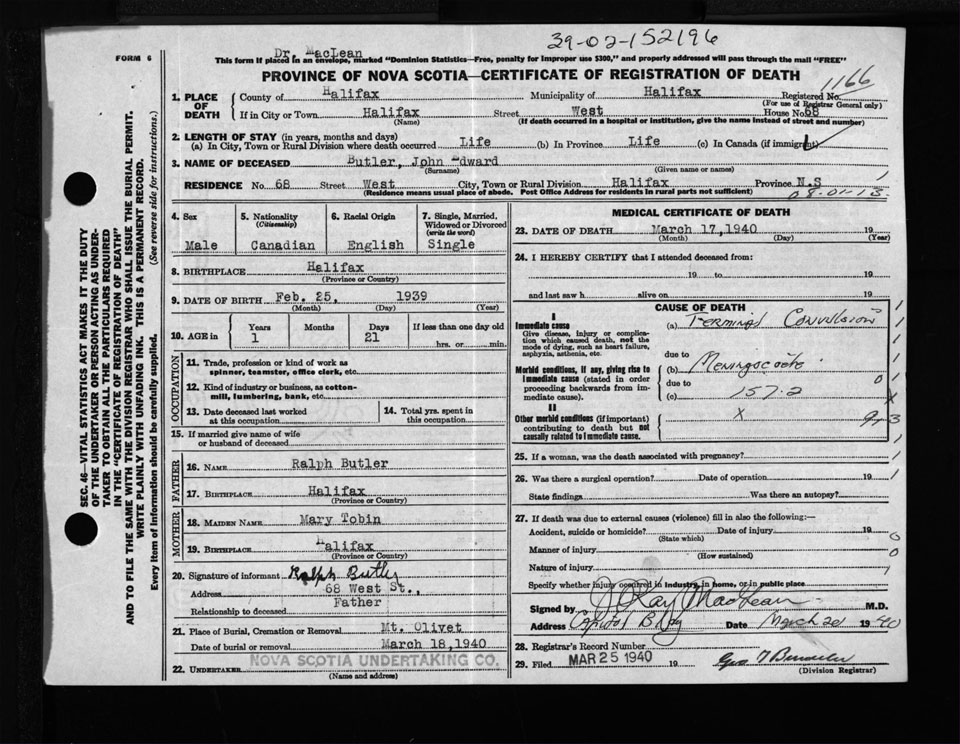 39-02-152196
Dr. MacLean
FORM 6
This form if placed in an envelope, marked "Dominion Statistics—Free, penalty for improper use $300," and properly addressed will pass through the mail "FREE"
PROVINCE OF NOVA SCOTIA—CERTIFICATE OF REGISTRATION OF DEATH
1166
1. PLACE OF DEATH
County of Halifax Municipality of Halifax Registered No.
(For use of Registrar General only)
If in City or Town Halifax Street West House No. 68
(Name) (If death occurred in a hospital or institution, give the name instead of street and number)
2. LENGTH OF STAY (in years, months and days)
(a) In City, Town or Rural Division where death occurred Life (b) In Province Life (c) In Canada (if immigrant)
3. NAME OF DECEASED Butler, John Edward
(Surname) (Given name or names)
RESIDENCE No. 68 Street West City, Town or Rural Division Halifax Province N.S
(Residence means usual place of abode. Post Office Address for residents in rural parts not sufficient)
08-01-13
4. Sex
Male
5. Nationality
(Citizenship)
Canadian
6. Racial Origin
English
7. Single, Married, Widowed or Divorced
(write the word)
Single
8. BIRTHPLACE Halifax
(Province or Country)
9. DATE OF BIRTH Feb. 25, 1939
(Month) (Day) (Year)
10. AGE in
Years Months Days If less than one day old
1 21 hrs. or min.
OCCUPATION
11. Trade, profession or kind of work as
spinner, teamster, office clerk, etc.
12. Kind of industry or business, as cotton-
mill, lumbering, bank, etc.
13. Date deceased last worked
at this occupation
14. Total yrs. spent in
this occupation
15. If married give name of wife
or husband of deceased
FATHER
16. NAME Ralph Butler
17. BIRTHPLACE Halifax
(Province or Country)
MOTHER
18. MAIDEN NAME Mary Tobin
19. BIRTHPLACE Halifax
(Province or Country)
20. Signature of informant Ralph Butler
Address 68 West St.,
Relationship to deceased Father
21. Place of Burial, Cremation or Removal Mt. Olivet
Date of burial or removal March 18, 1940
22. UNDERTAKER NOVA SCOTIA UNDERTAKING CO.
(Name and address)
MEDICAL CERTIFICATE OF DEATH
23. DATE OF DEATH March 17, 1940 19
(Month) (Day) (Year)
24. I HEREBY CERTIFY that I attended deceased from:
19 to 19
and last saw h alive on 19
CAUSE OF DEATH
I
Immediate cause
Give disease, injury or complica-
tion which caused death, not the
mode of dying, such as heart failure,
asphyxia, asthenia, etc.
(a) Terminal Convulsion
due to
Morbid conditions, if any, giving rise to
immediate cause (stated in order
proceeding backwards from im-
mediate cause).
(b) Meningocoele
due to
(c) 157.2
II
Other morbid conditions (if important)
contributing to death but not
causally related to immediate cause.
x
25. If a woman, was the death associated with pregnancy?
26. Was there a surgical operation? Date of operation 19
State findings Was there an autopsy?
27. If death was due to external causes (violence) fill in also the following:—
Accident, suicide or homicide? Date of injury 19
(State which)
Manner of injury
(How sustained)
Nature of injury
Specify whether injury occurred in industry, in home, or in public place
Signed by J Ray MacLean M.D.
Address Capitol Bldg Date March 20 1940
28. Registrar's Record Number
29. Filed MAR 25 1940 19
(Division Registrar)
SEC. 46—VITAL STATISTICS ACT MAKES IT THE DUTY
OF THE UNDERTAKER OR PERSON ACTING AS UNDER-
TAKER TO OBTAIN ALL THE PARTICULARS REQUIRED
IN THE "CERTIFICATE OF REGISTRATION OF DEATH"
AND TO FILE THE SAME WITH THE DIVISION REGISTRAR WHO SHALL ISSUE THE BURIAL PERMIT.
WRITE PLAINLY WITH UNFADING INK. THIS IS A PERMANENT RECORD.
Every item of information should be carefully supplied. (See reverse side for instructions.)